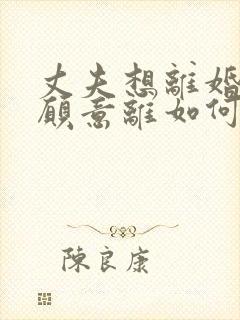 丈夫想離婚
願意離如何
陳良康